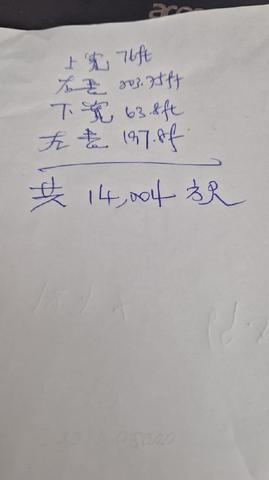 acer
上宽 76ft
右长 203.75ft
下宽 63.8ft
左长 197.8f
共 14,004 方尺